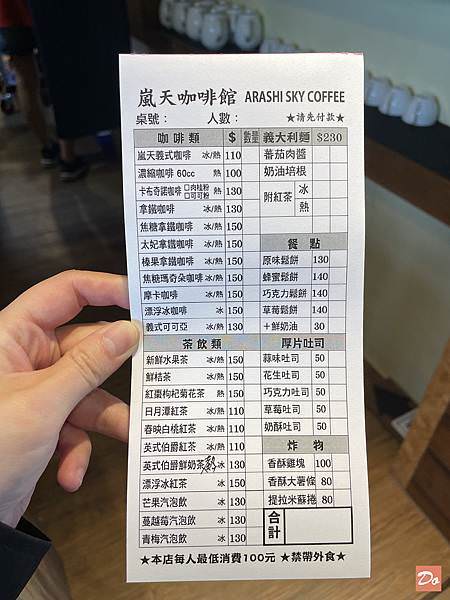 嵐天咖啡館 ARASHI SKY COFFEE
桌號： 人數： ★請先付款★
咖啡類 $ 數量
嵐天義式咖啡 冰/熱 110
濃縮咖啡 60cc 熱 100
卡布奇諾咖啡 □肉桂粉 □可可粉 熱 130
拿鐵咖啡 冰/熱 130
焦糖拿鐵咖啡 冰/熱 150
太妃拿鐵咖啡 冰/熱 150
榛果拿鐵咖啡 冰/熱 150
焦糖瑪奇朵咖啡 冰/熱 150
摩卡咖啡 冰/熱 150
漂浮冰咖啡 冰 150
義式可可亞 冰/熱 130
茶飲類
新鮮水果茶 冰/熱 150
鮮桔茶 冰/熱 150
紅棗枸杞菊花茶 熱 150
日月潭紅茶 冰/熱 110
春映白桃紅茶 冰/熱 110
英式伯爵紅茶 冰/熱 110
英式伯爵鮮奶茶 冰 130
漂浮冰紅茶 冰 150
芒果汽泡飲 冰 130
蔓越莓汽泡飲 冰 130
青梅汽泡飲 冰 130
義大利麵 $230
蕃茄肉醬
奶油培根
附紅茶 冰
熱
餐點
原味鬆餅 130
蜂蜜鬆餅 140
巧克力鬆餅 140
草莓鬆餅 140
＋鮮奶油 30
厚片吐司
蒜味吐司 50
花生吐司 50
巧克力吐司 50
草莓吐司 50
奶酥吐司 50
炸物
香酥雞塊 100
香酥大薯條 80
提拉米蘇捲 80
合計
★本店每人最低消費100元 ★禁帶外食★
Do